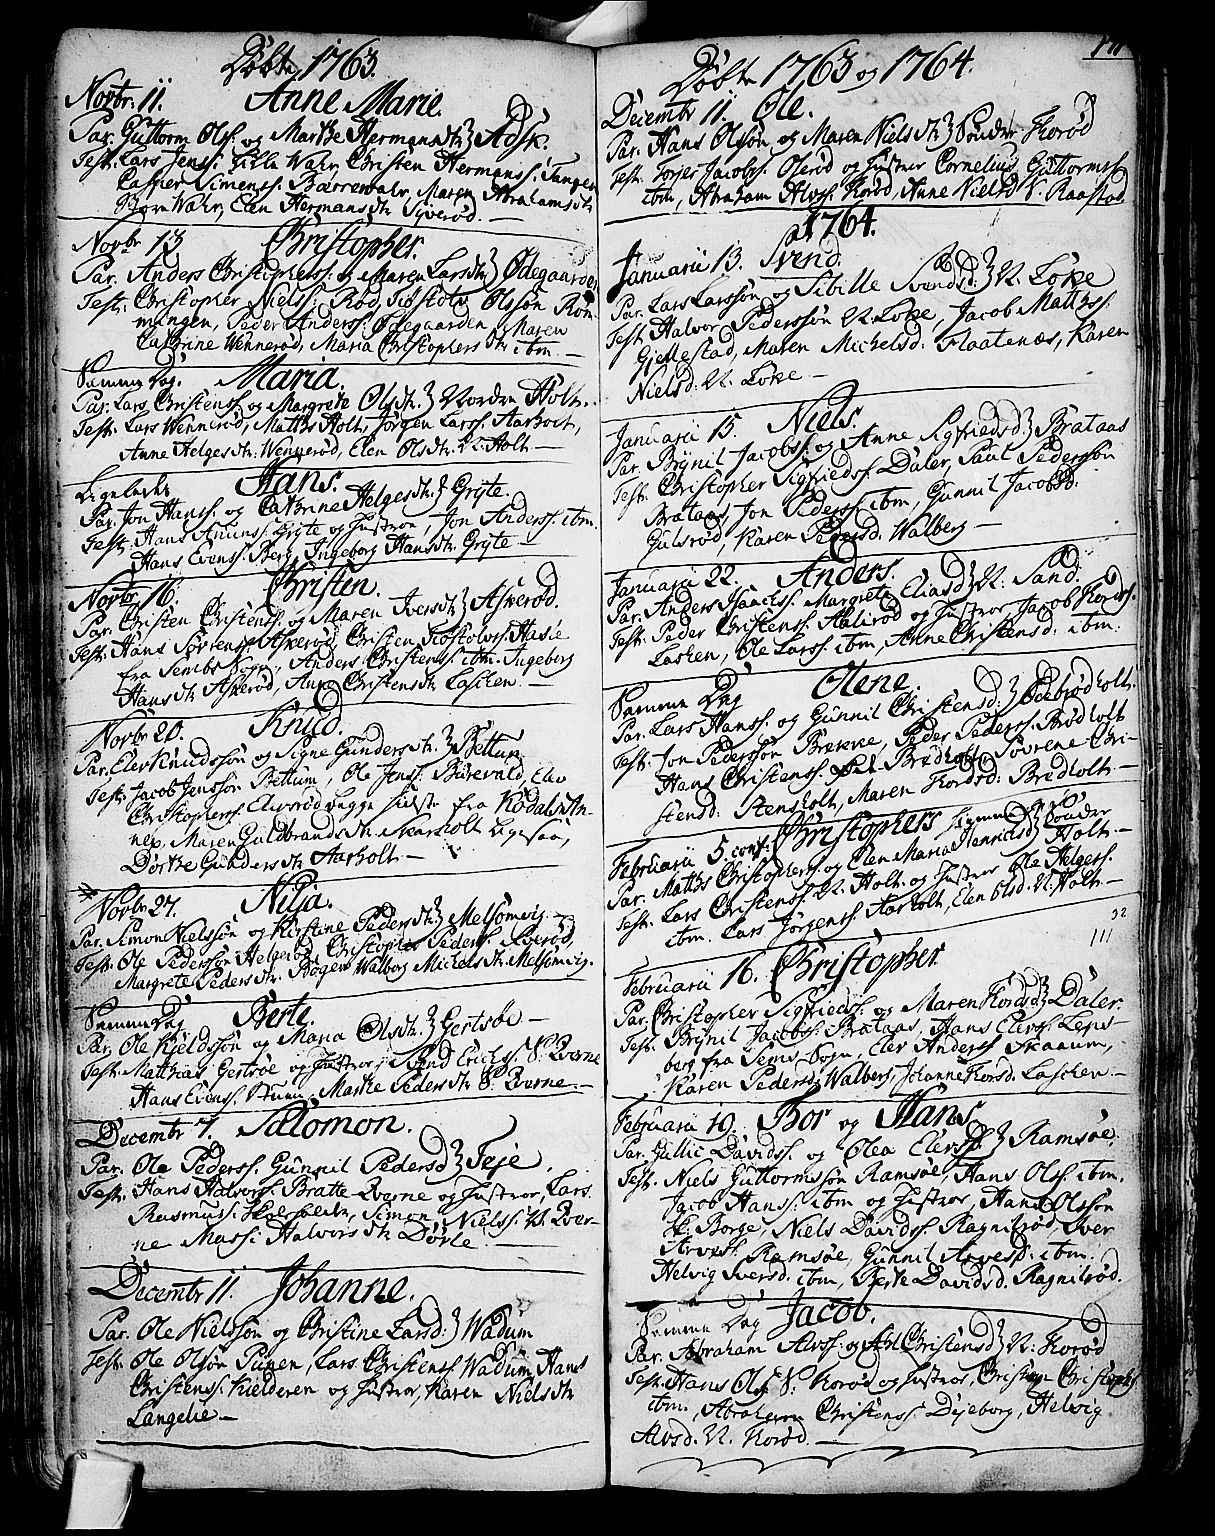 Døbte 1763.
Novbr. 11. Anne Marie.
Par. Guttorm Ols. og Marthe Hermansdtr. Adsk.
Test. Lars Jenss. Lille Wahr, Christen Hermanss. Tangen
Casper Simenss. Barrewahr, Maren Abrahamsdtr
Biørn Wahr, Elen Hermansdtr Syverød. —
Novbr 13 Christopher.
Par. Anders Christophers. og Maren Larsdtr Ødegaarden
Test. Christopher Nielss. Rød, Kostolv Olsøn Røn-
ningen, Peder Anderss. Ødegaarden, Maren
Cathrine Wennerød, Maria Christophersdtr ibm. —
Samme Dag. Maria.
Par. Lars Christenss. og Margrete Olsdtr. Nordre Holt.
Test. Lars Wennerød, Matths Holt, Jørgen Larss. Aarholt,
Anne Helgesdtr. Wennerød, Elen Olsdtr. N. Holt —
Ligeledes Hans.
Par. Jon Hanss. og Cathrine Helgesdtr. Gryte.
Test. Hans Amunds. Gryte og Hustroe, Jon Anderss. ibm.
Hans Evenss. Berg, Ingeborg Hansdtr. Gryte —
Novbr 16. Christen.
Par. Christen Christenss. og Maren Iversdtr Askerød.
Test. Hans Sørenss. Askerød, Christen Kostolvss. Hasle
fra Sembs Sogn, Anders Christenss. ibm. Ingeborg
Hansdtr Askerød, Anne Christensdtr Lasken. —
Novbr 20. Knud.
Par. Elev Knudssøn og Signe Gundersdtr. Bettum
Test. Jacob Jenssøn Bettum, Ole Jenss. Burevald, Elev
Christophers. Alvsrød begge sidste fra Kodals An-
nex, Maren Guldbrandsdtr. Skarsholt ligesaa,
Dorthe Gundersdtr Aarholt —
Novbr 27. Nilia.
Par. Simon Nielssøn og Kirstine Pedersdtr. Melsomvig.
Test. Ole Pederssøn Helgerød, Christopher Pederss. Sverød,
Margrete Pedersdtr. Bøgen Walborg Michelsdtr. Melsomvig.
Samme Dag Berte.
Par. Ole Kieldssøn og Maria Olsdtr. Gertsøe —
Test. Matthias Gertsøe og Hustroe, Svend Erichss. S. Qverne
Hans Evenss. Stuun, Marthe Pedersdtr S. Qverne. —
Decembr 7. Salomon.
Par. Ole Pederss. Gunnil Pedersd. Feje.
Test. Hans Halvorss. Bratte Qverne og Hustroe, Lars
Rasmuss. Skolholder, Simon Nielss. N. Qver-
ne Massi Halvorsdtr Dørle —
Decembr 11. Johanne.
Par. Ole Nielssøn og Christine Larsd. Wadum
Test. Ole Olsøn Punen, Lars Christenss. Wadum, Hans
Christenss. Kielderen og Hustroe, Karen Nielsdtr
Langelie. —
Døbte 1763 og 1764.
Decembr 11. Ole.
Par. Hans Olssøn, og Maren Nielsdtr Sønder Korød
Test. Torger Jacobss. Oserød og Hustroe Cornelius Guttormss.
ibm, Abraham Alvss. Korød, Anne Nielsd. N. Raastad.
1764.
Januarii 13. Svend.
Par. Lars Larssøn og Sibille Svendsd. N. Løke
Test. Halvor Pederssøn N. Løke, Jacob Matthss.
Gjellestad, Maren Michelsd. Flaatenæs, Karen
Nielsd. N. Løke —
Januarii 15. Niels.
Par. Brynil Jacobss. og Anne Sigfriedsd. Brataas
Test. Christopher Sigfriedss. Daler, Paul Pederssøn
Brataas, Jon Pederss. ibm, Gunnil Jacobsd.
Gulsrød, Karen Pedersd. Walberg —
Januarii 22. Anders.
Par. Anders Isachss. Margrete Eliasd. N. Sand.
Test. Peder Christenss. Aalirød og Hustroe Jacob Kordss.
Lasken, Ole Larss. ibm, Anne Christensd. ibm.
Samme Dag Olene.
Par. Lars Hanss. og Gunnil Christensd. Brødholt.
Test. Jon Pederssøn Brekke, Peder Pederss. Brødholt
Hans Christenss. Bredholt Søvrene Chri-
stensd. Stensholt, Maren Kordsd. Bredholt —
Februarii 5. conf. Christophers hiemme
Par. Matths Christophers. og Elen Maria Henricsd. Sønder Holt.
Test. Lars Christenss. N. Holt og Hustroe Ole Helgess.
ibm. Lars Jørgenss. Aarholt, Elen Olsd. N. Holt —
32
111
Februarii 16. Christopher
Par. Christopher Sigfriedss. og Maren Kordsd. Daler.
Test. Brynil Jacobss. Brataas, Hans Elevss. Leps-
berg fra Sems Sogn, Elev Anderss. Skaaum,
Karen Pedersd. Walberg, Johanne Kordsd. Lasken. —
Februarii 19. Bor og Hans.
Par. Gullic Davidss. og Olea Elevsd. Ramsøe,
Test. Niels Guttormssøn Ramsøe, Hans Olss. ibm.
Jacob Hanss. ibm og Hustroe, Hans Olssøn
Sk. Borge, Niels Davidss. Ragnilrød, Iver
Arvess. Ramsøe, Gunnil Arvesd. ibm.
Helvig Iversd. ibm, Berte Davidsd. Ragnilrød.
Samme Dag Jacob.
Par. Abraham Alvss. og Christensd. N. Korød
Test. Hans Ols. S. Korød og Hustroe, Christen Christophs.
ibm, Abraham Christenss. Dyeborg, Helvig
Alvsd. N. Korød. —